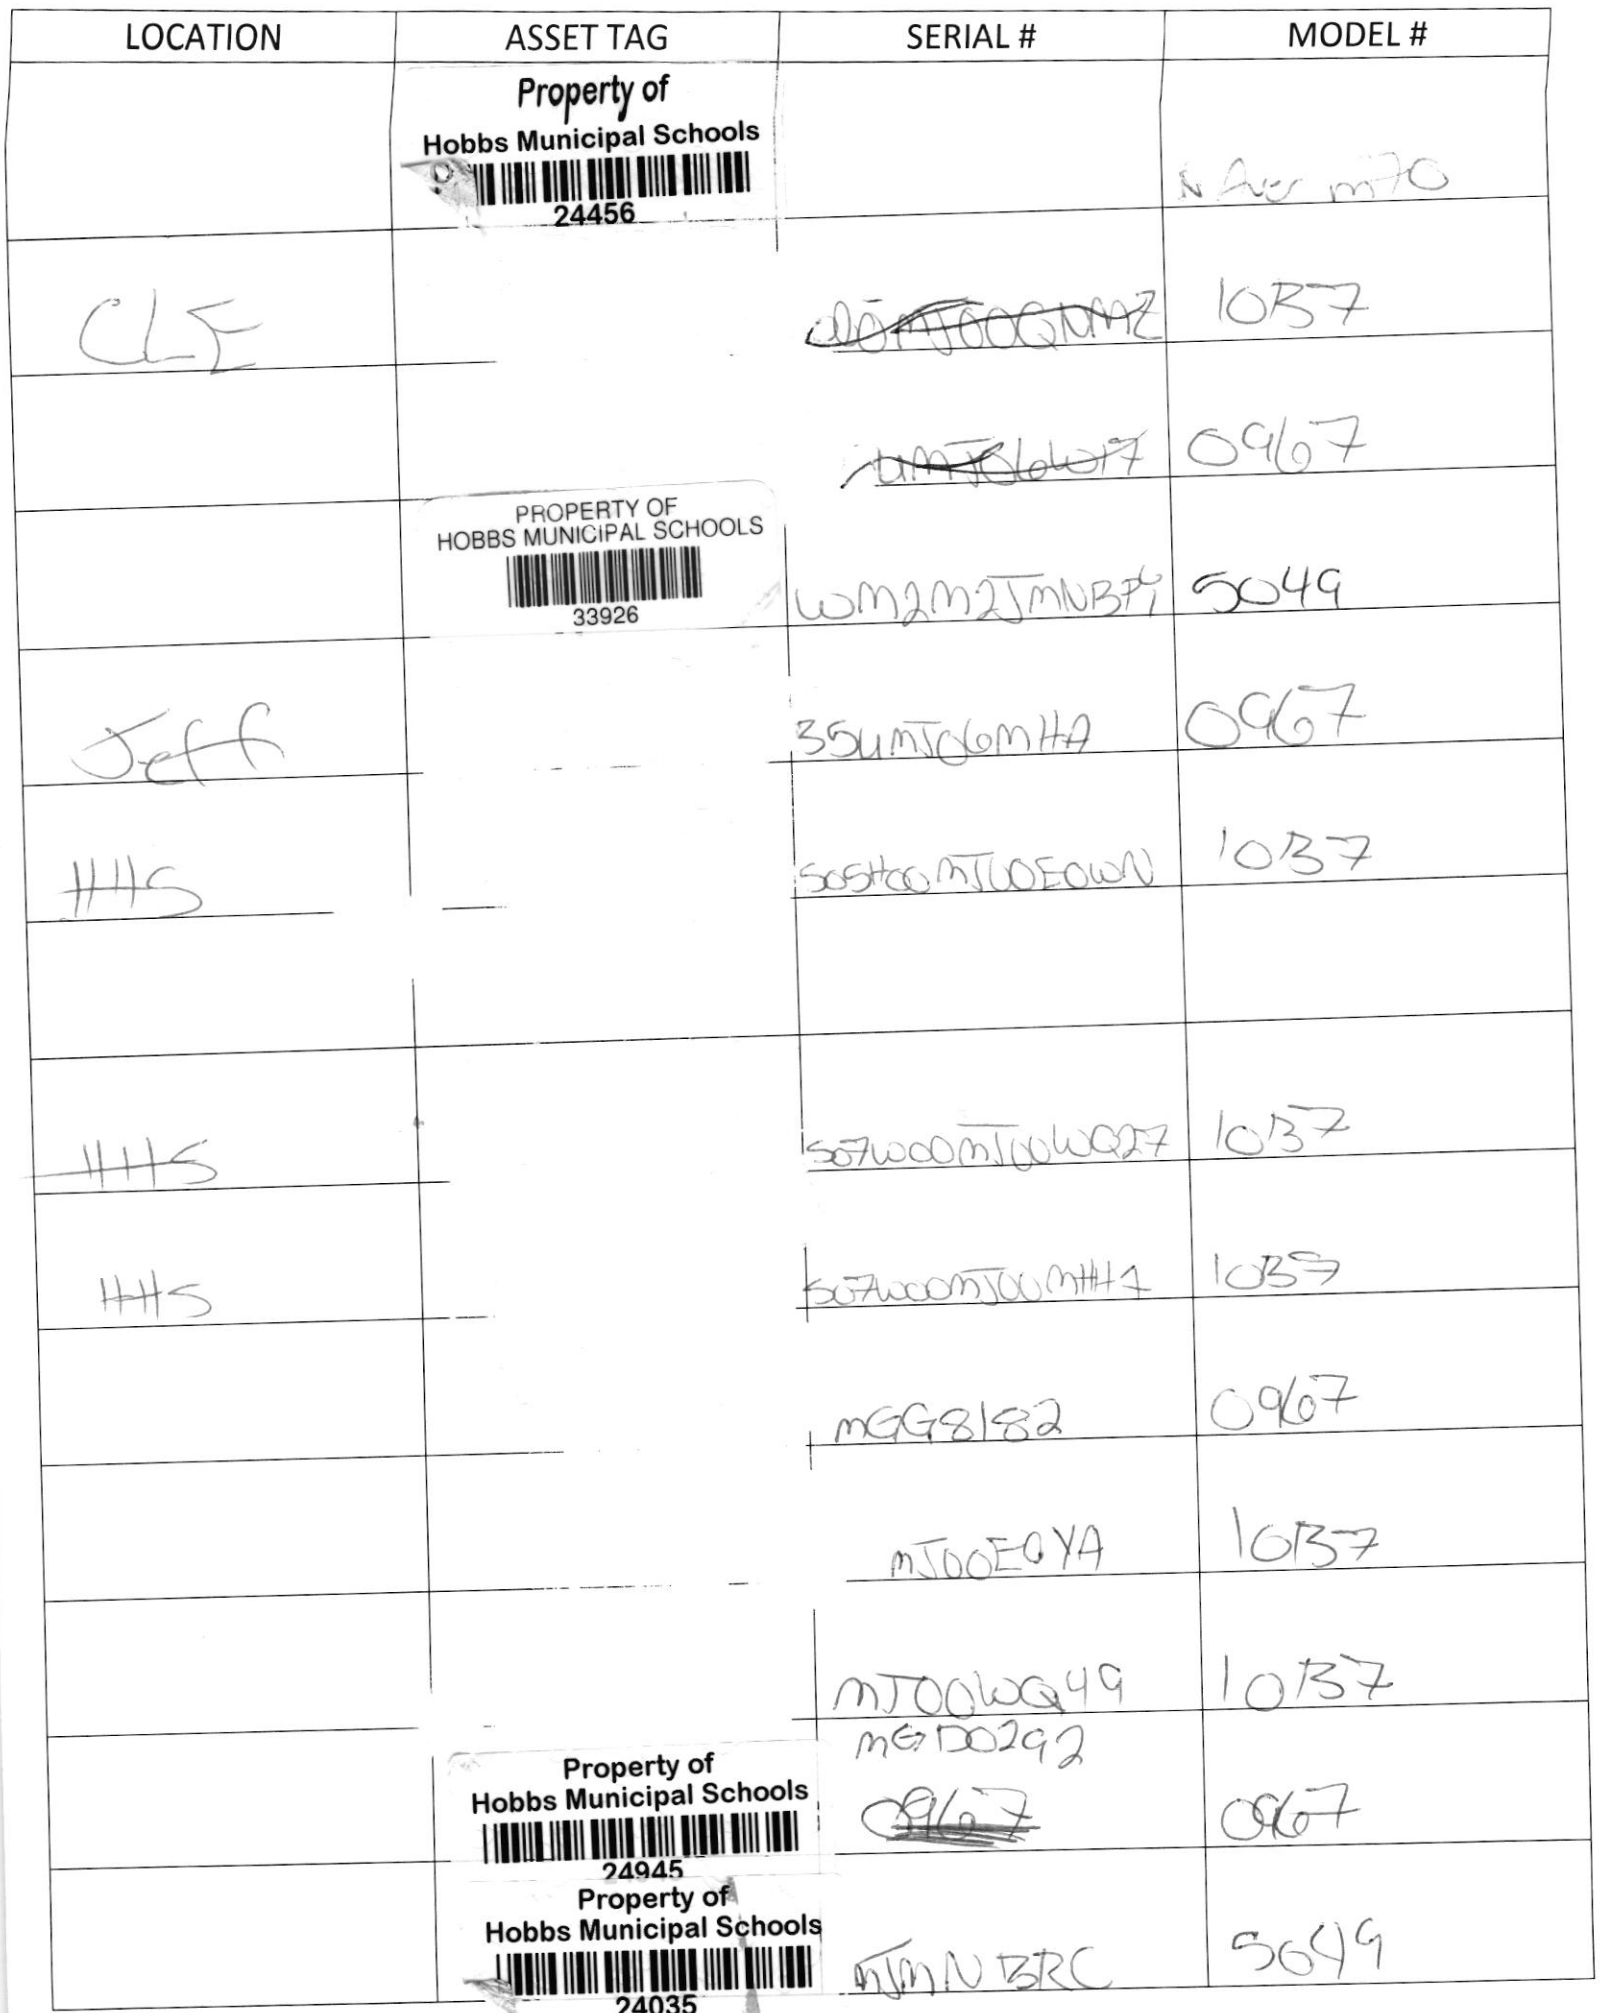 LOCATION ASSET TAG SERIAL # MODEL #
Property of
Hobbs Municipal Schools
24456
Aver m70
CLE 10B7
0967
PROPERTY OF
HOBBS MUNICIPAL SCHOOLS
33926
5049
Jeff 35UMJ06MHA 0967
HHS S05H00MJ00E0WN 10B7
HHS S07W00MJ00WQ27 10B7
HHS S07W00MJ00MHH1 10B7
MGG8182 0967
MJ00EQYA 10B7
MJ00WQ49 10B7
MGD0292
Property of
Hobbs Municipal Schools
24945
0967 0967
Property of
Hobbs Municipal Schools
24035
MJMNBRC 5049